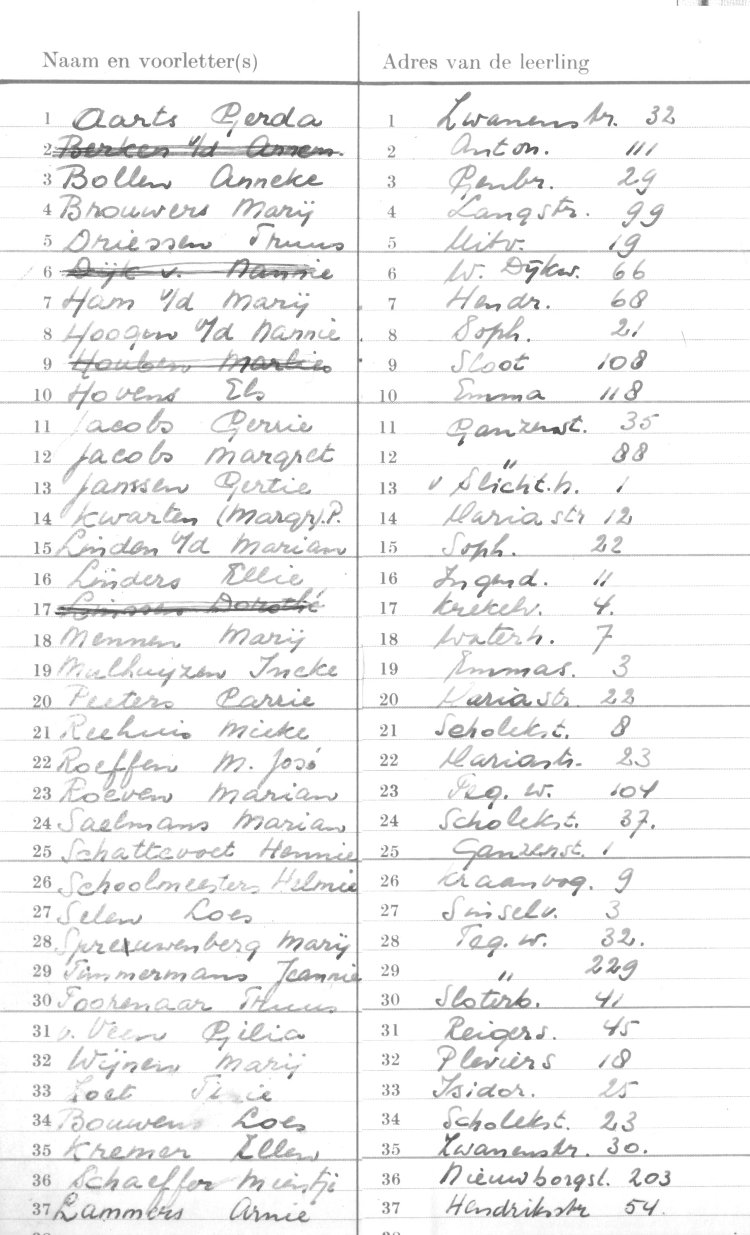 Naam en voorletter(s) Adres van de leerling
1 Aarts Gerda 1 Zwanenstr. 32
2 Berken v/d Annem. 2 Anton. 111
3 Bollen Anneke 3 Genbr. 29
4 Brouwers Marij 4 Langstr. 99
5 Driessen Truus 5 Uitv. 19
6 Dijk v. Nannie 6 W. Dijkw. 66
7 Ham v/d Marij 7 Hendr. 68
8 Hoogen v/d Nannie 8 Soph. 21
9 Houben Marlies 9 Sloot 108
10 Hovens Els 10 Emma 118
11 Jacobs Gerrie 11 Ganzenst. 35
12 Jacobs Margret 12 " 88
13 Janssen Gertie 13 v Slicht.h. 1
14 Kwarten (Margr).P. 14 Maria str 12
15 Linden v/d Marian 15 Soph. 22
16 Linders Ellie 16 11
17 Linssen Dorothé 17 Krekelv. 4.
18 Mennen Marij 18 Waterh. 7
19 Mulhuijzen Ineke 19 Emmas. 3
20 Peeters Carrie 20 Maria str. 22
21 Reehuis Mieke 21 Scholekst. 8
22 Roeffen M. José 22 Mariastr. 23
23 Roeven Marian 23 Teg. w. 104
24 Saelmans Marian 24 Scholekst. 37.
25 Schattevoet Hennie 25 Ganzenst. 1
26 Schoolmeesters Helmie 26 Kraanvog. 9
27 Selen Loes 27 Sinselv. 3
28 Spreeuwenberg Marij 28 Teg. w. 32.
29 Timmermans Jeannie 29 " 229
30 Toorenaar Truus 30 Sloterb. 41
31 v. Veen Gilia 31 Reigers. 45
32 Wijnen Marij 32 Pleviers 18
33 Zoet 33 Isidor. 25
34 Bouwens Loes 34 Scholekst. 23
35 Kremer Ellen 35 Zwanenstr. 30.
36 Schaeffer Mientje 36 Nieuwborgst. 203
37 Lammers Arnie 37 Hendrikstr 54.